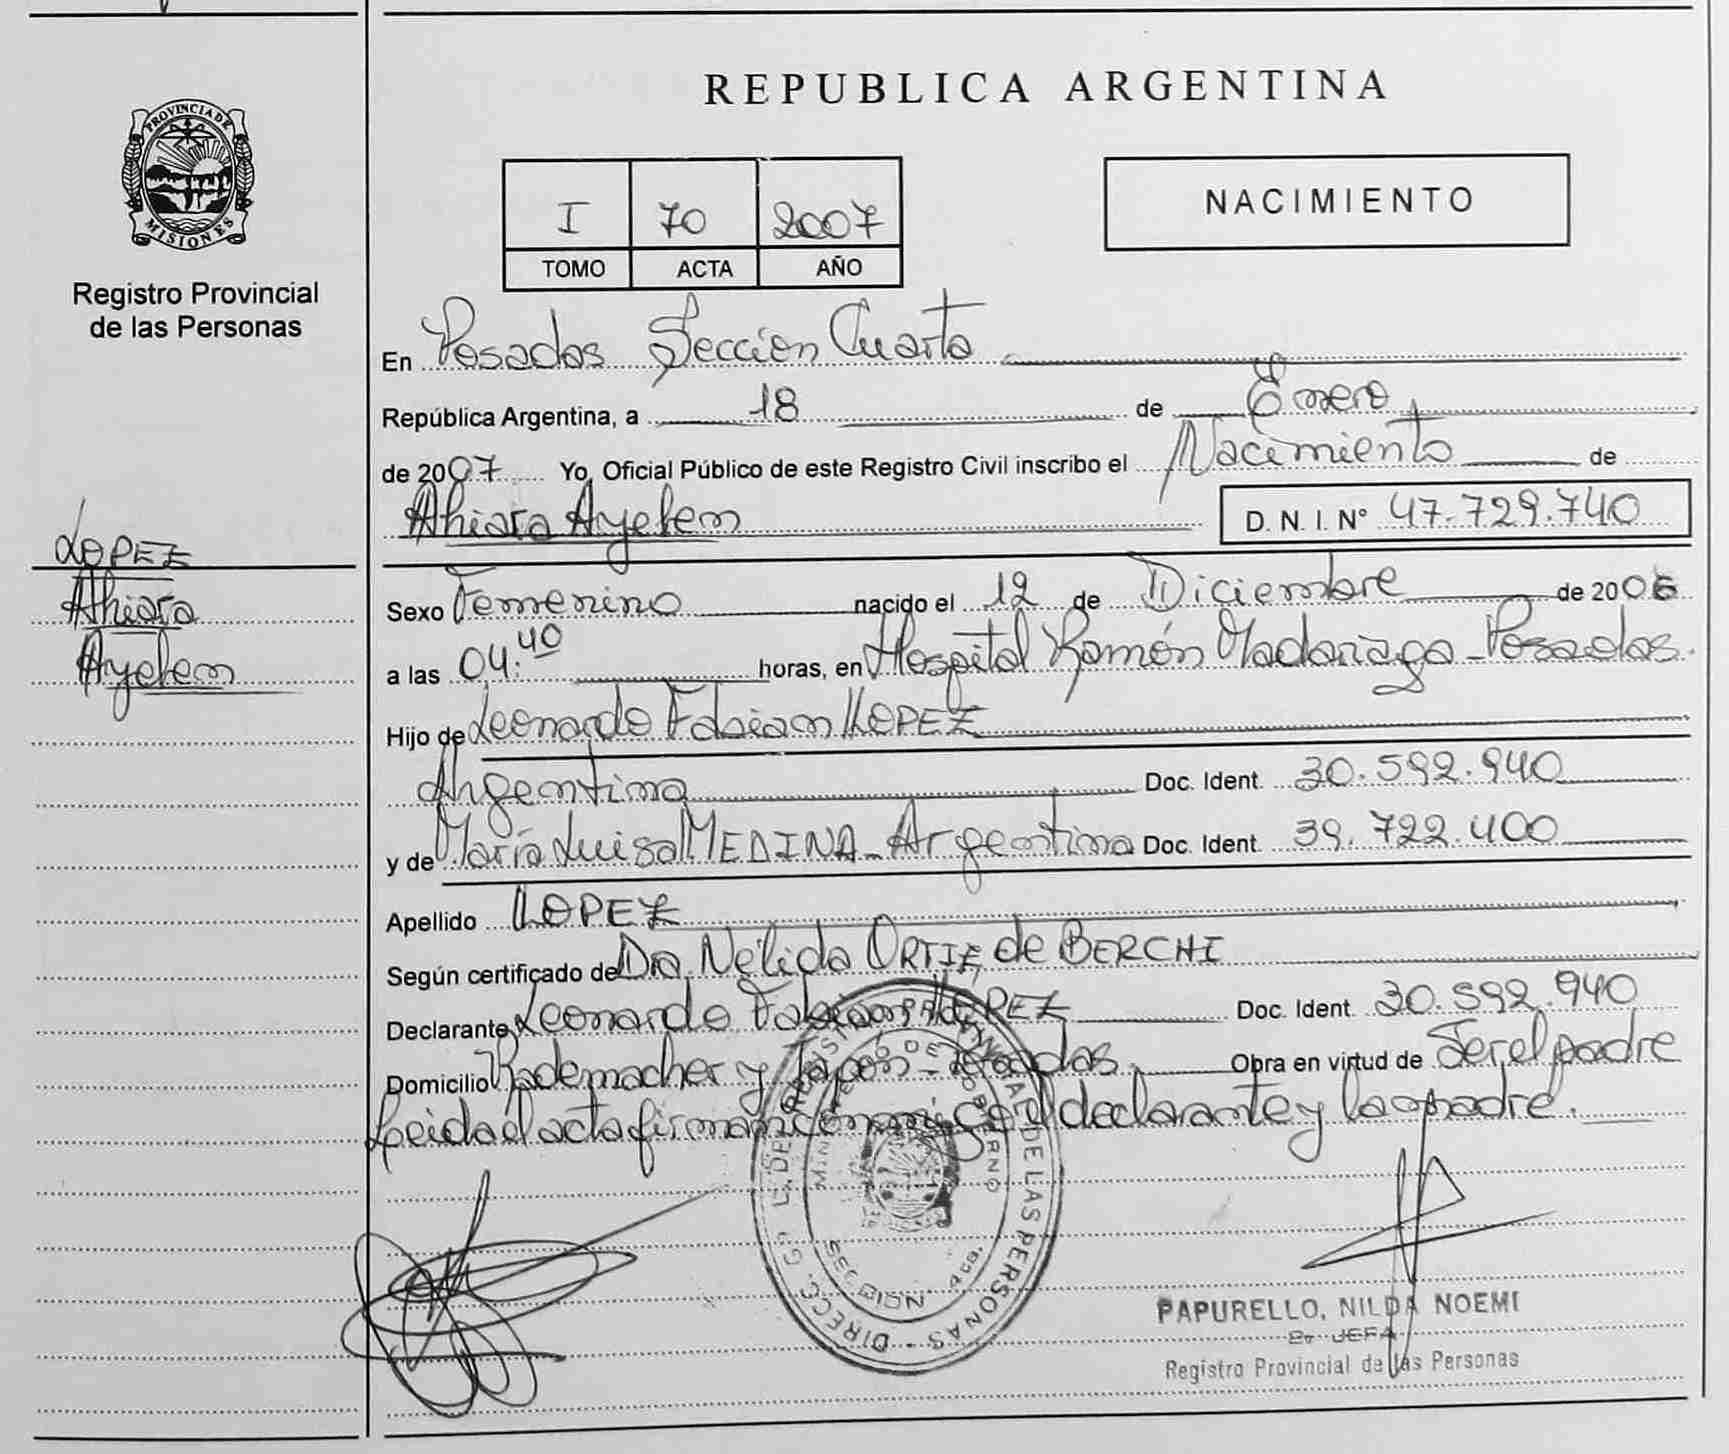 PROVINCIA DE
MISIONES
Registro Provincial
de las Personas
LOPEZ
Ahiara
Ayelem
REPUBLICA ARGENTINA
I 70 2007
TOMO ACTA AÑO
NACIMIENTO
En Posadas Sección Cuarta
República Argentina, a 18 de Enero
de 2007 Yo, Oficial Público de este Registro Civil inscribo el Nacimiento de
Ahiara Ayelem D. N. I. Nº 47.729.740
Sexo Femenino nacido el 12 de Diciembre de 2006
a las 04:40 horas, en Hospital Ramón Madariaga - Posadas.
Hijo de Leonardo Fabian LOPEZ
Argentina Doc. Ident. 30.592.940
y de María Luisa MEDINA - Argentina Doc. Ident 39.722.400
Apellido LOPEZ
Según certificado de Dra. Nélida ORTIZ de BERCHI
Declarante Leonardo Fabian LOPEZ Doc. Ident. 30.592.940
Domicilio Rademacher y Japón - Posadas Obra en virtud de Ser el padre
Leida el acta firman conmigo el declarante y la madre.
DE LAS PERSONAS
SECCION 4ta.
PAPURELLO, NILDA NOEMI
JEFA
Registro Provincial de las Personas